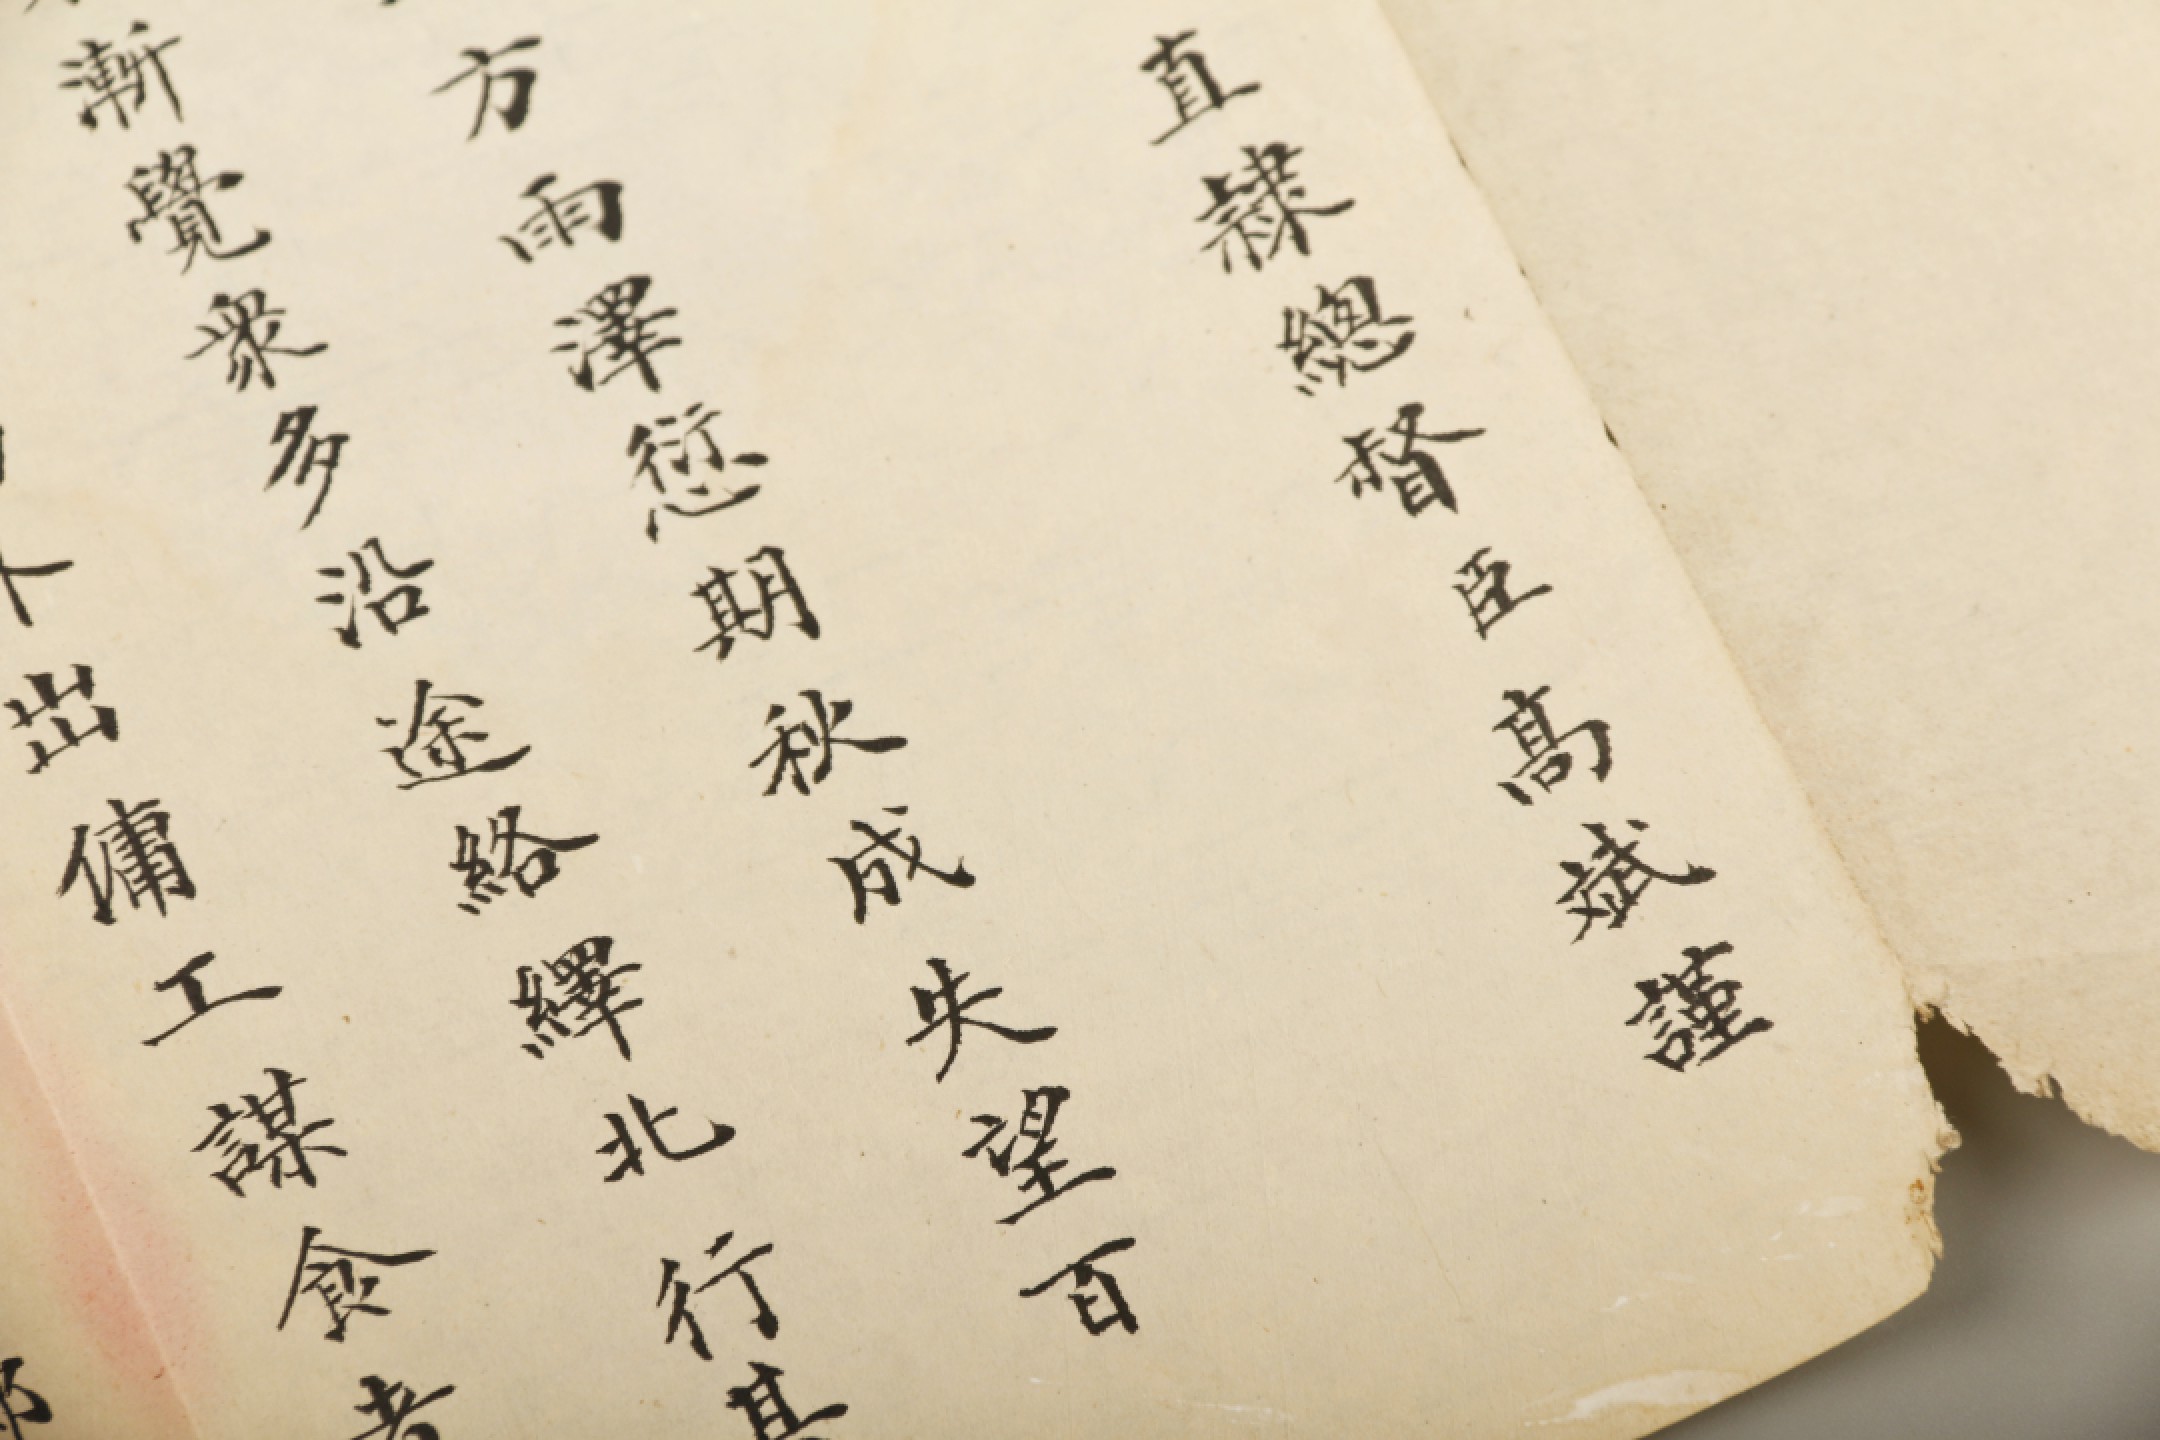 直隸總督臣高斌謹
方雨澤愆期秋成失望百
漸覺衆多沿途絡繹北行其
出傭工謀食者